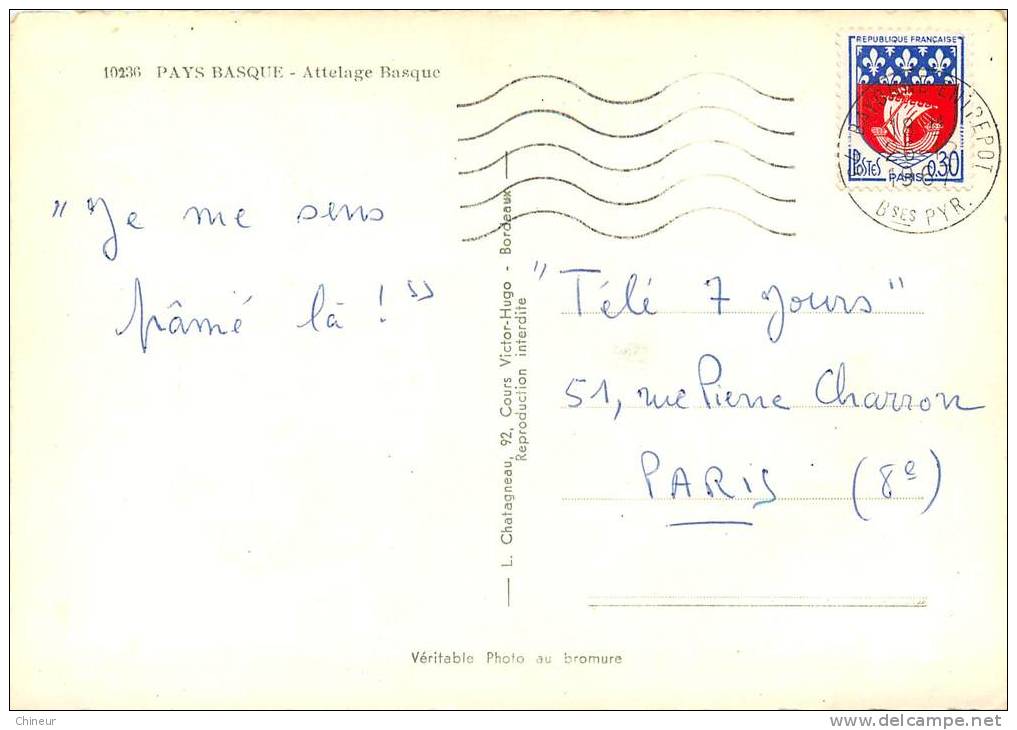 10236 PAYS BASQUE - Attelage Basque
REPUBLIQUE FRANÇAISE
POSTES PARIS 0,30
ENTREPOT
18 H
1967
BSES PYR.
" Je me sens
pâmé là ! "
" Télé 7 Jours "
51, rue Pierre Charron
PARIS (8e)
L. Chatagneau, 92, Cours Victor-Hugo - Bordeaux
Reproduction interdite
Véritable Photo au bromure
Chineur
www.delcampe.net